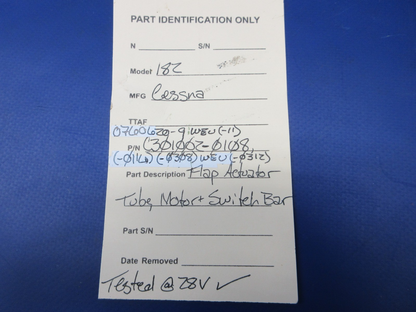 PART IDENTIFICATION ONLY
N S/N
Model 182
MFG Cessna
TTAF
0760620-9 WEU (-11)
P/N (301002-0108,
(-0116) (-0308) WEU (-0312)
Part Description Flap Actuator
Tube, Motor + Switch Bar
Part S/N
Date Removed
Tested @ 28V ✓